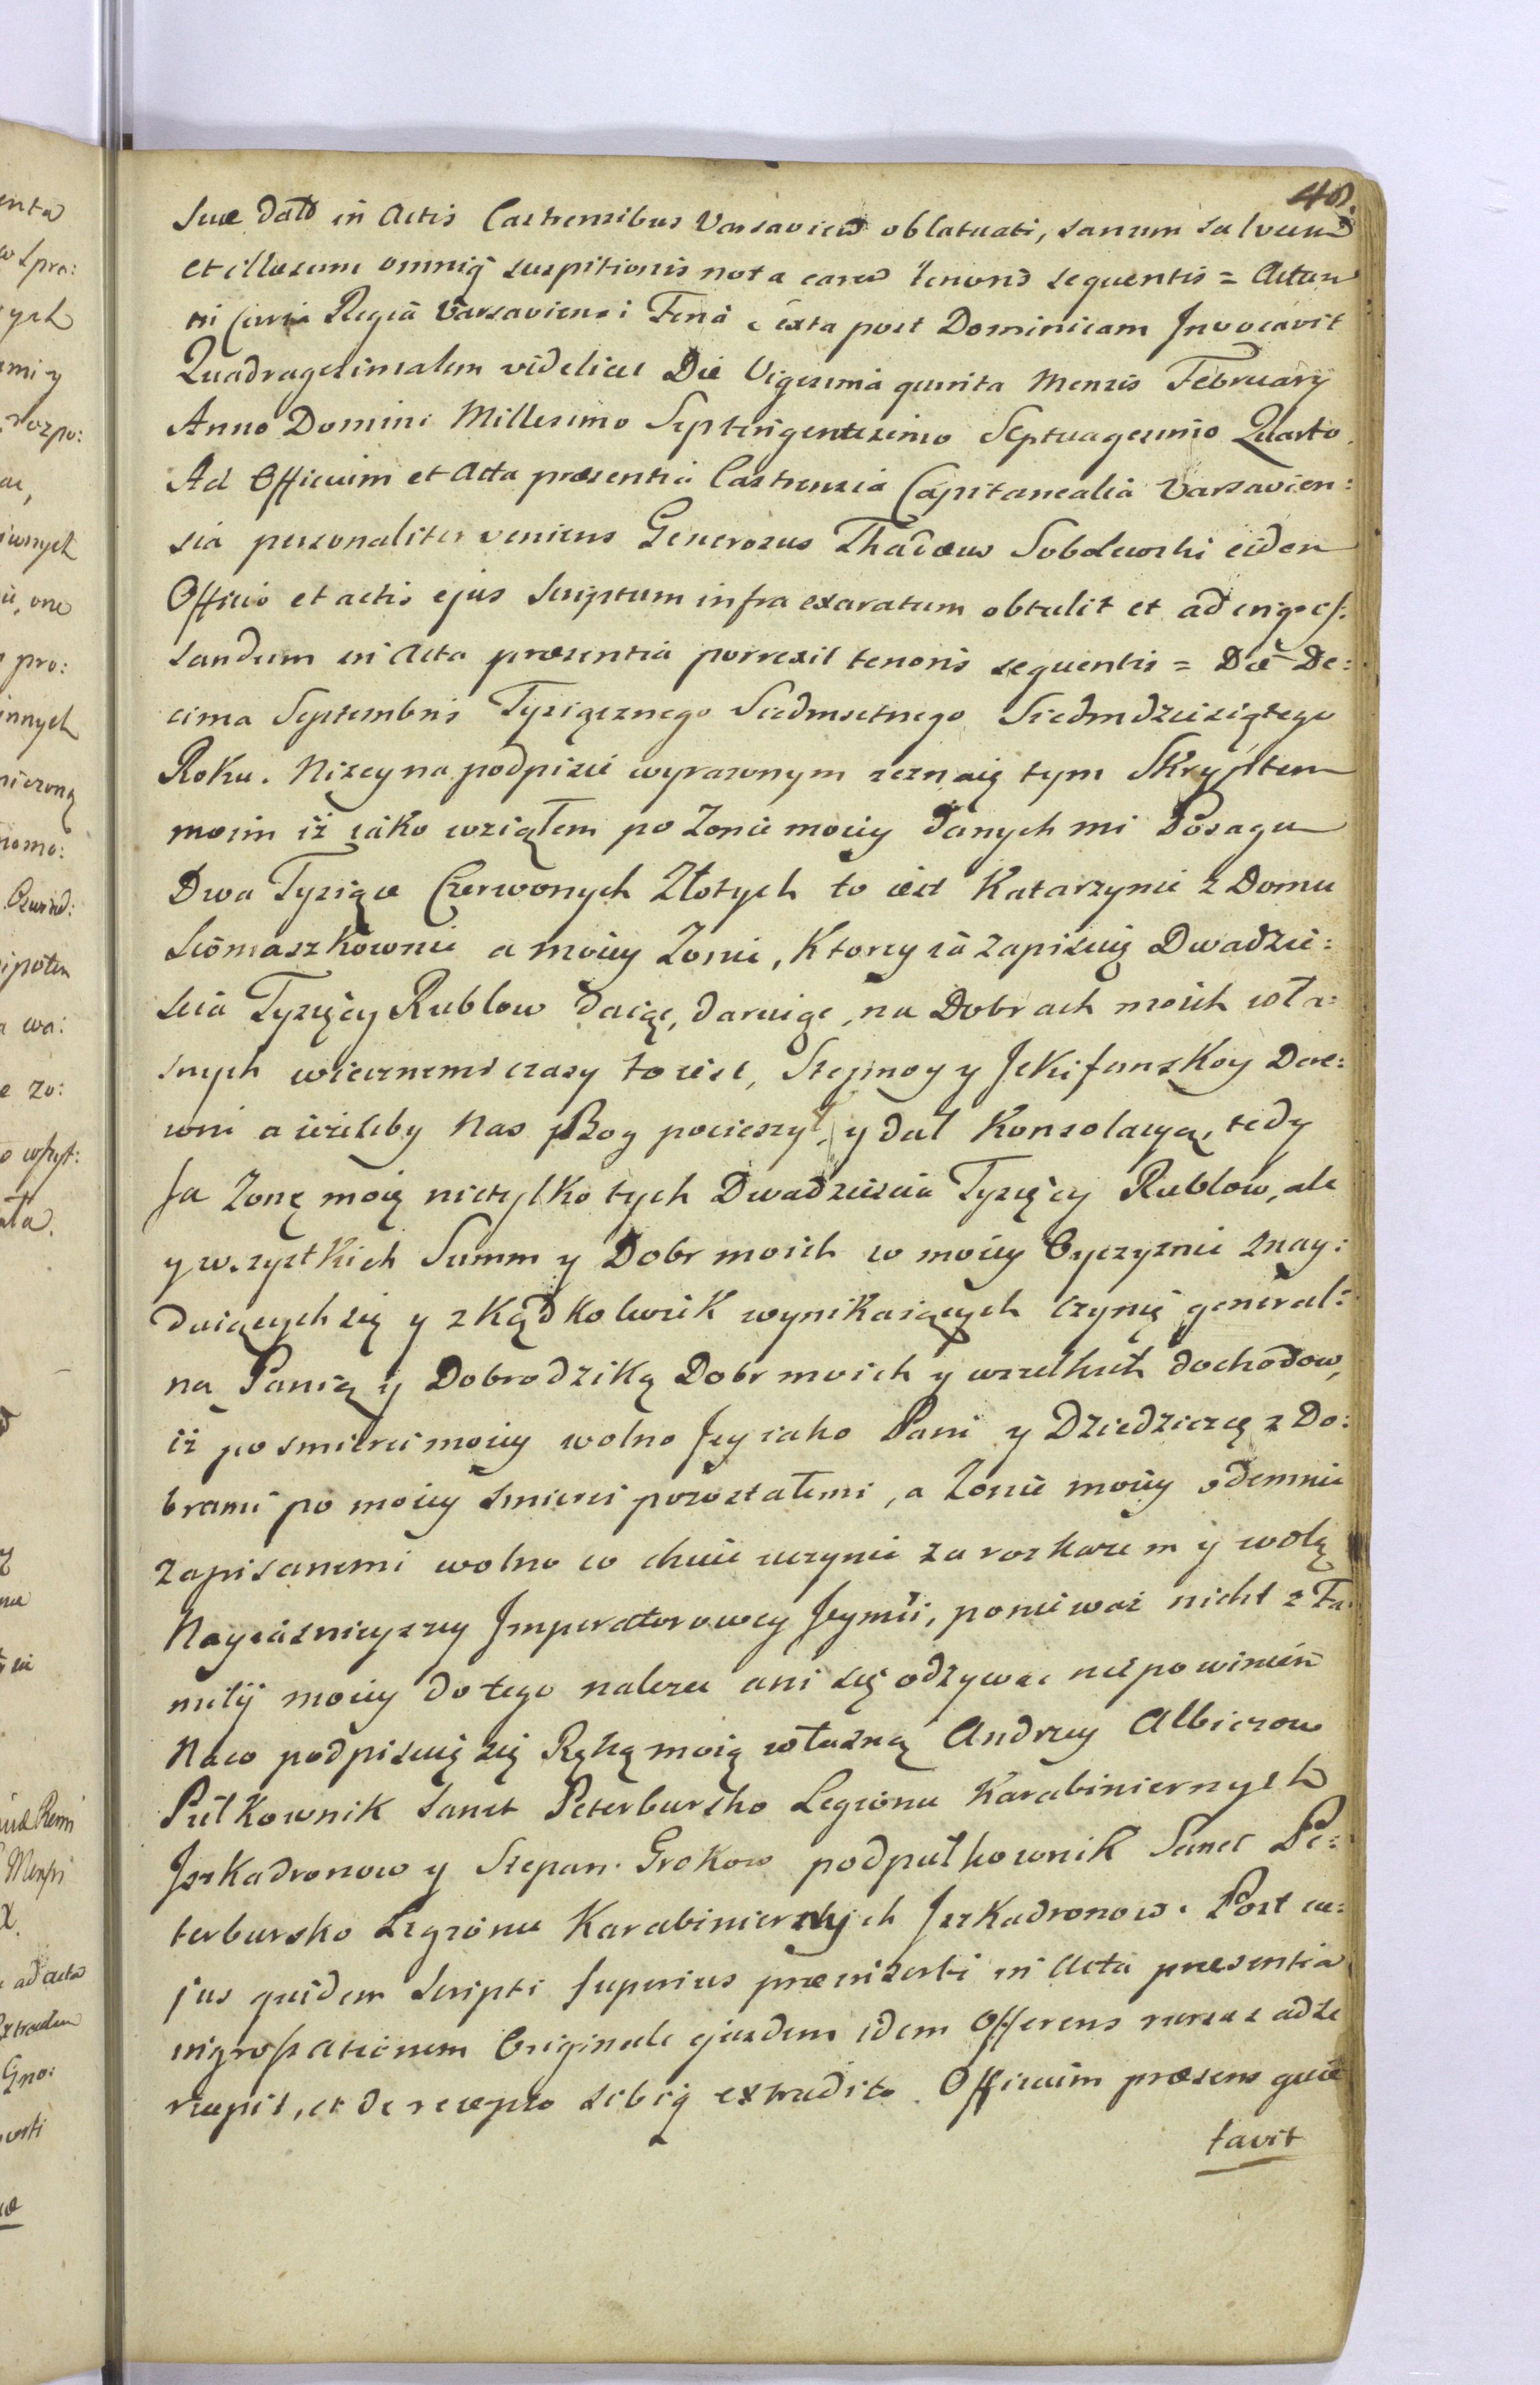 48.
suæ dato in Actis Castrensibus Varsavien oblatuati, sanum salvum
et illæsum omniq suspitionis nota caren tenoris sequentis = Actum
in Curia Regia Varsaviensi Feria sexta post Dominicam Invocavit
Quadragesimalem videlicet Die Vigesima quinta Mensis February
Anno Domini Millesimo Septingentesimo Septuagesimo Quarto.
Ad Officium et Acta præsentia Castrensia Capitanealia Varsavien:
sia personaliter veniens Generosus Thadæus Sobolewski eidem
Officio et actis ejus Scriptum infra exaratum obtulit et ad ingros:
sandum in Acta præsentia porrexit tenoris sequentis = Die De:
cima Septembris Tysiącznego Siedmsetnego Siedmdziesiątego
Roku. Niżey na podpisie wyrażonym zeznaię tym Skryptem
moim iż iako wziąłem po Żonie moiey danych mi Posagu
Dwa Tysiące Czerwonych Złotych to iest Katarzynie z Domu
Siomaszkownie a moiey Żonie, Ktorey ia zapisuię Dwadzie:
scia Tysięcy Rublow daię, daruię, na Dobrach moich wła:
snych wiecznemi czasy to iest, Szejnoy y Jekifanskoy Dere:
wni a ieżeliby Nas P Bog pocieszył, y dał Konsolacyą, tedy
Ja Żonę moię nietylko tych Dwadziescia Tysięcy Rublow, ale
y wszystkich Summ y Dobr moich w moiey Oyczyznie znay:
duiących się y zkądkolwiek wynikaiących czynię general:
ną Panią y Dobrodziką Dobr moich y wszelkich dochodow,
iż po smierci moiey wolno Jey iako Pani y Dziedziczcę z Do:
brami po moiey smierci pozostałemi, a Żonie moiey odemnie
zapisanemi wolno co chcie uczynic za rozkazem y wolą
Nayiasnieyszey Imperatorowey Jeymści, poniewaz nicht z Fa:
milij moiey do tego należec ani się odzywac niepowinien
Na co podpisuię się Ręką moią własną Andrzey Albiczow
Pułkownik Sanct Peterbursko Legionu Karabiniernych
Jszkadronow y Stepan Grekow podpułkownik Sanct Pe:
terbursko Legionu Karabiniernych Jszkadronow. Post cu:
jus quidem Scripti superius præinserti in Acta præsentia
ingrossationem Originale ejusdem idem Offerens rursus ad se
recepit, et de recepto sibiq extradito Officium præsens quie
tavit